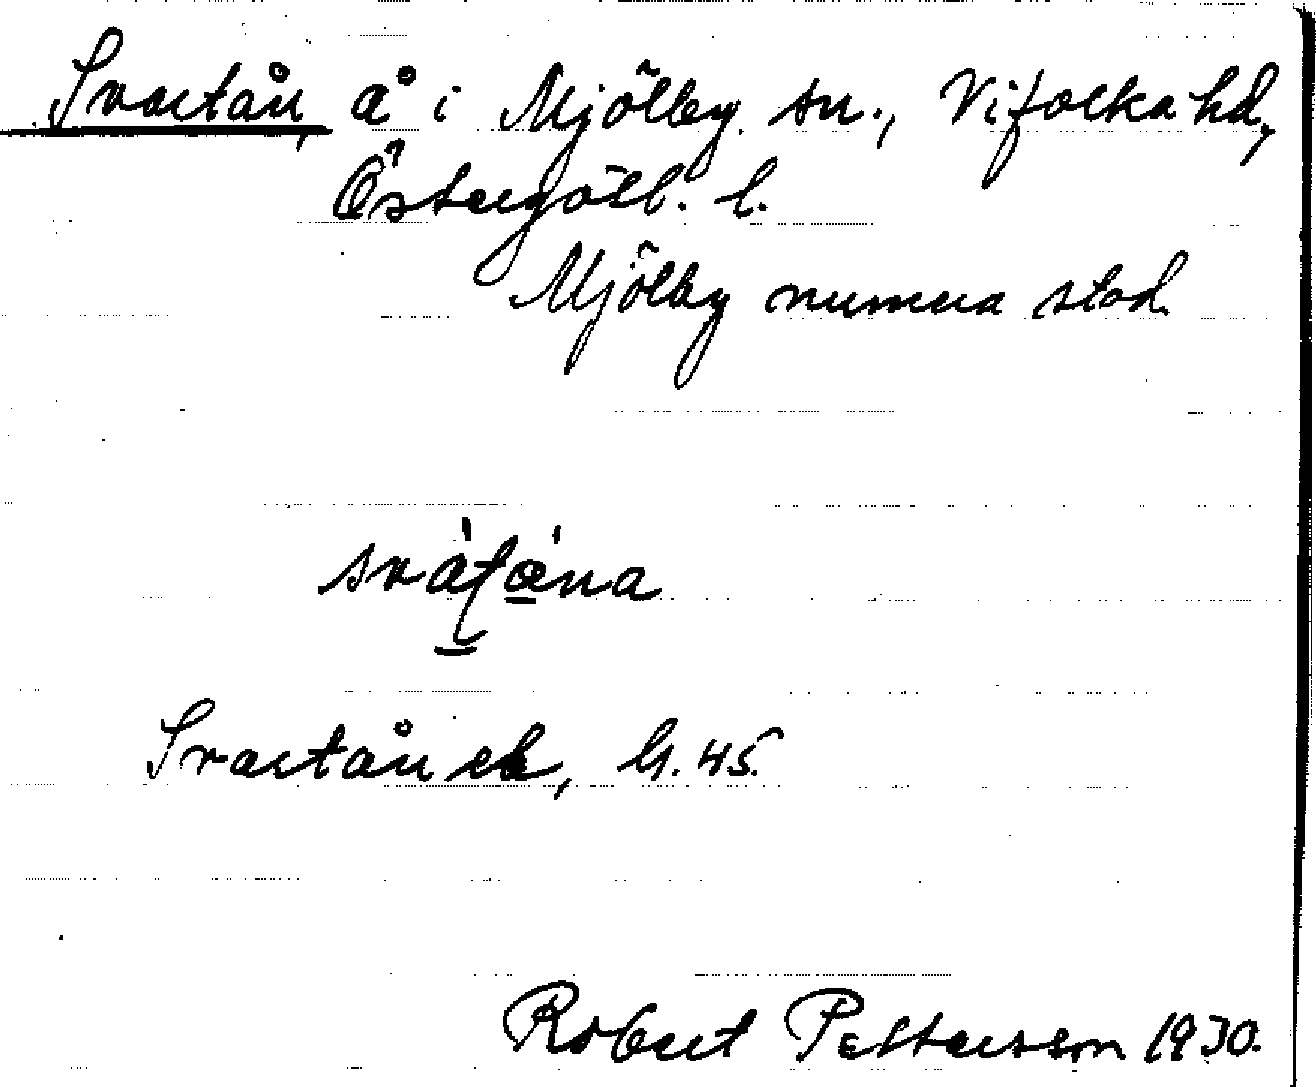 Svartån, å i Mjölby sn., Vifolka hd,
Östergötl. l.
Mjölby numera stad.
Svartån ek, G. 45.
Robert Pettersson 1930.